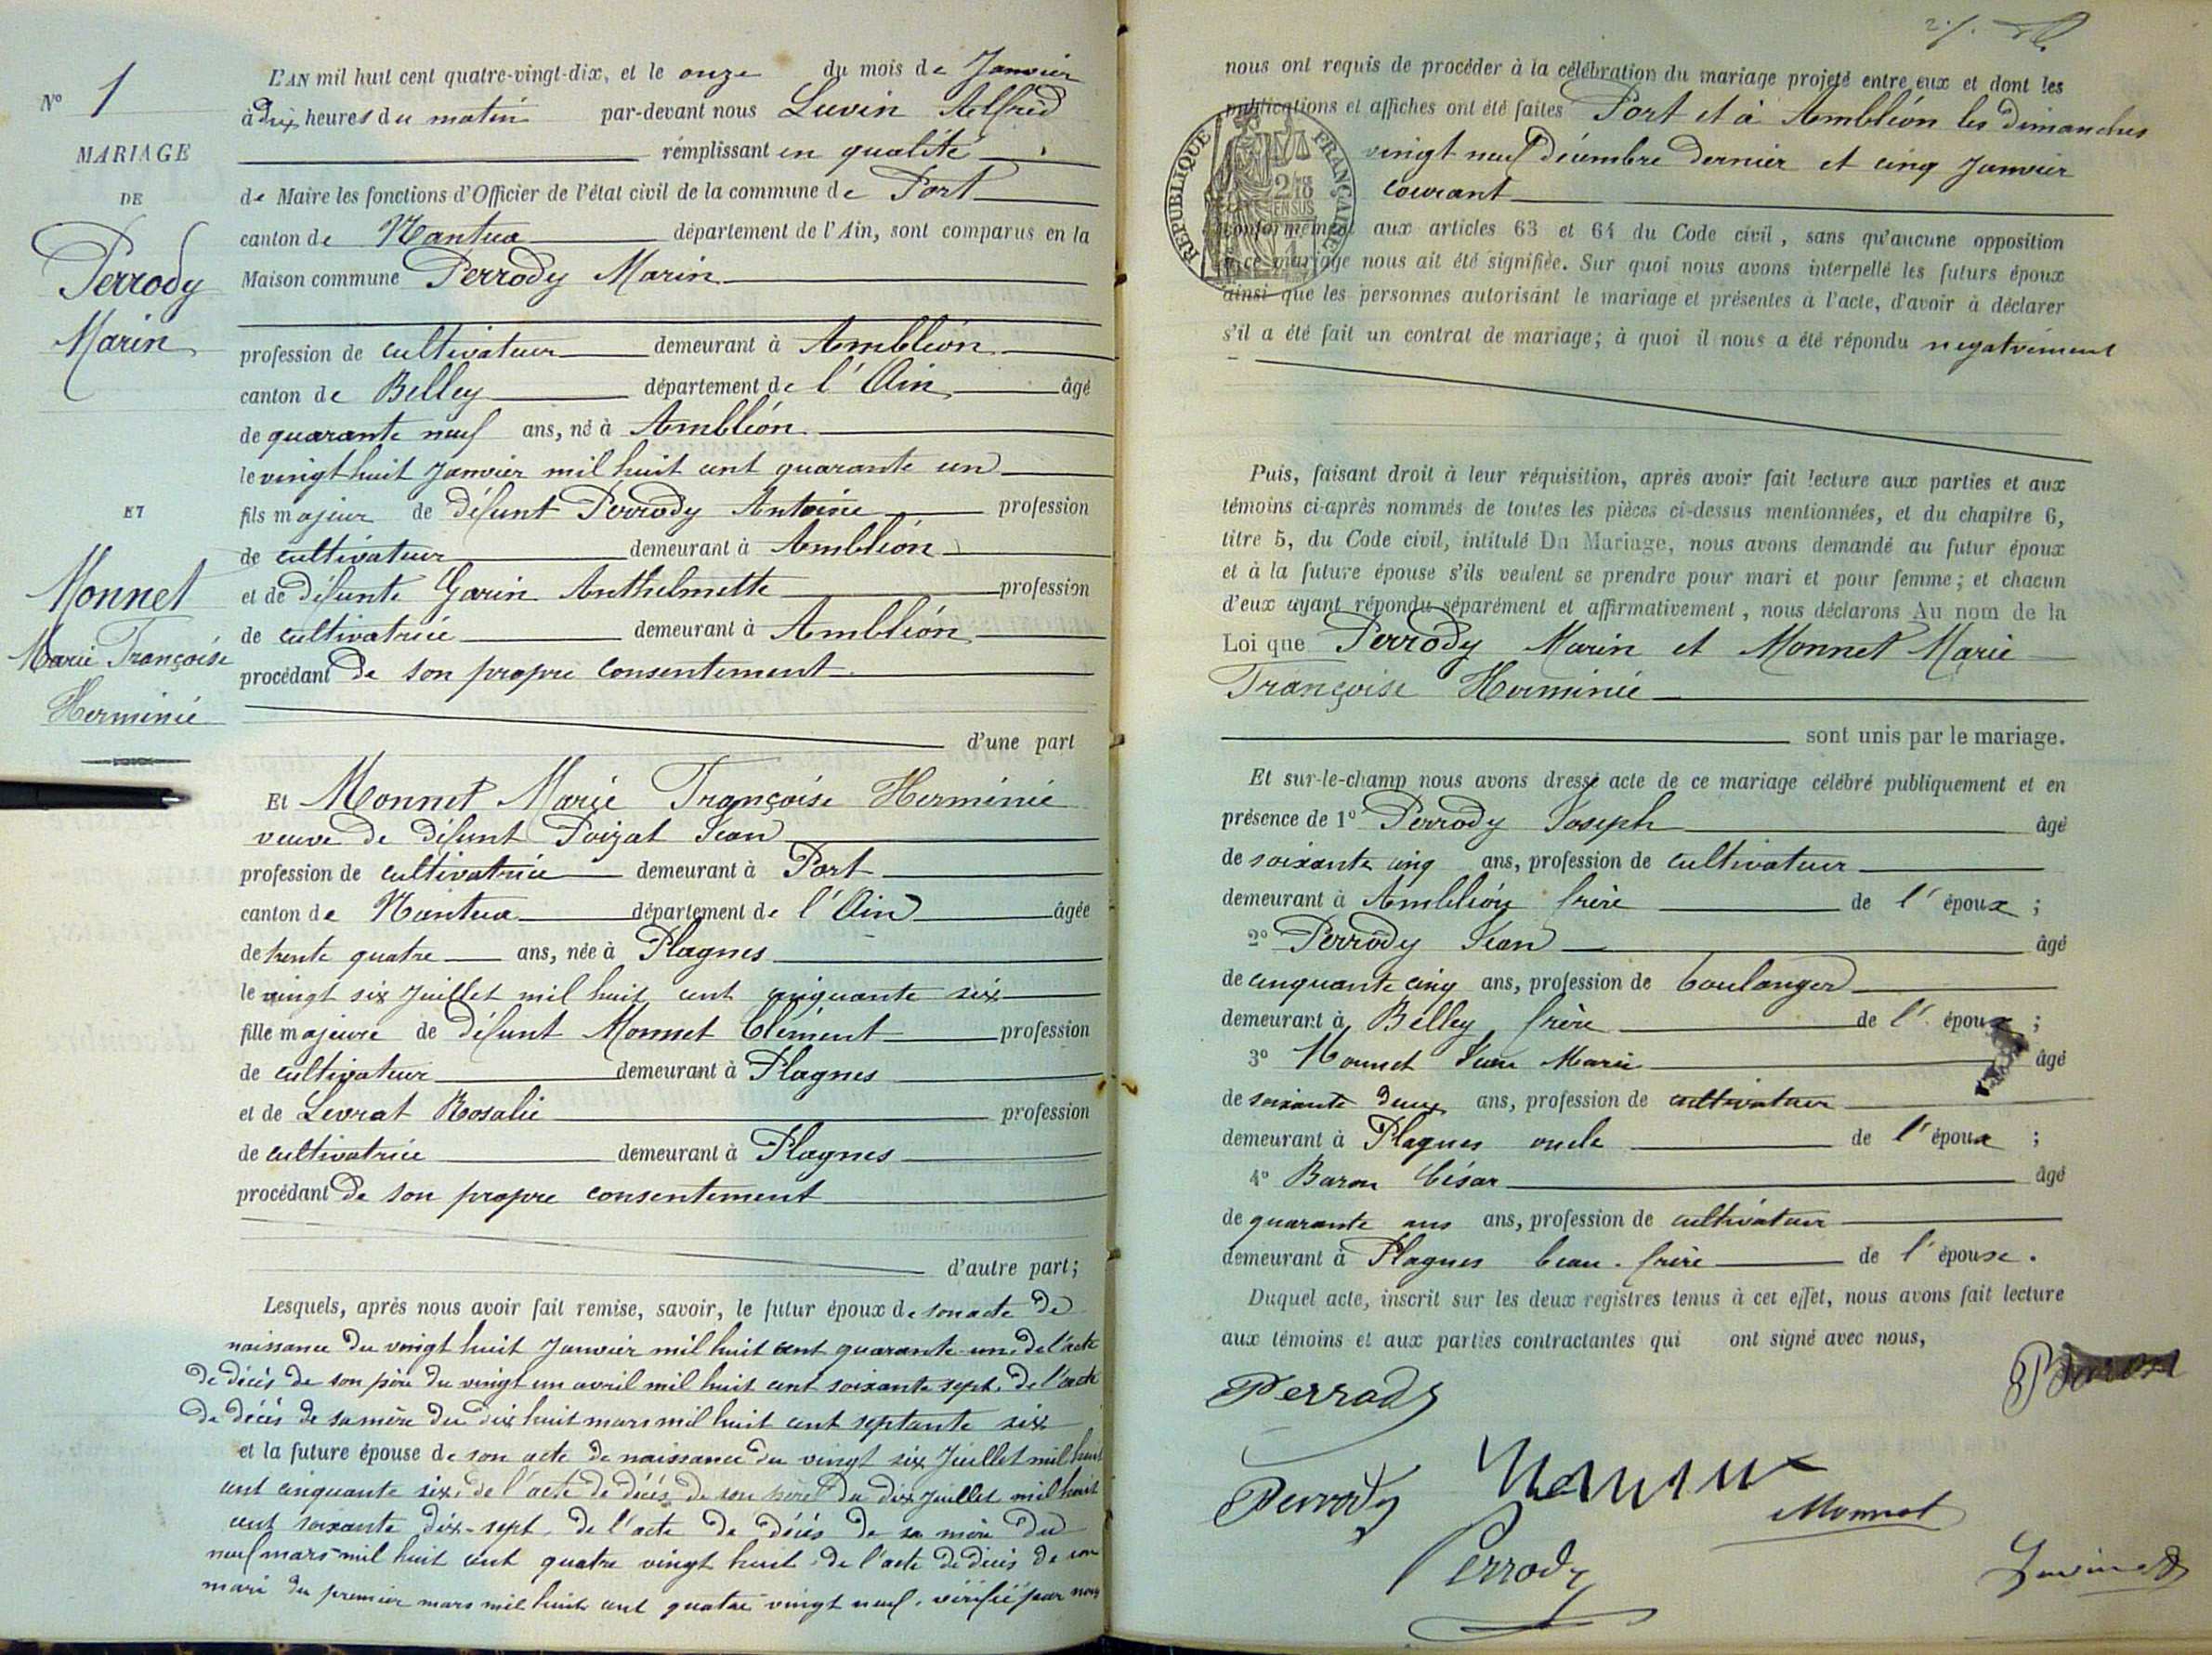 N° 1
MARIAGE
DE
Perrody
Marin
ET
Monnet
Marie Françoise
Herminie
L'AN mil huit cent quatre-vingt-dix, et le onze du mois de Janvier
à dix heures du matin par-devant nous Luvin Alfred
remplissant en qualité
de Maire les fonctions d'Officier de l'état civil de la commune de Port
canton de Nantua département de l'Ain, sont comparus en la
Maison commune Perrody Marin
profession de cultivateur demeurant à Ambléon
canton de Belley département de l'Ain âgé
de quarante neuf ans, né à Ambléon
le vingt huit Janvier mil huit cent quarante un
fils majeur de défunt Perrody Antoine profession
de cultivateur demeurant à Ambléon
et de défunte Garin Anthelmette profession
de cultivatrice demeurant à Ambléon
procédant de son propre consentement
d'une part
Et Monnet Marie Françoise Herminie
veuve de défunt Poizat Jean
profession de cultivatrice demeurant à Port
canton de Nantua département de l'Ain âgée
de trente quatre ans, née à Plagnes
le vingt six Juillet mil huit cent cinquante six
fille majeure de défunt Monnet Clément profession
de cultivateur demeurant à Plagnes
et de Levrat Rosalie profession
de cultivatrice demeurant à Plagnes
procédant de son propre consentement
d'autre part;
Lesquels, après nous avoir fait remise, savoir, le futur époux de son acte de
naissance du vingt huit Janvier mil huit cent quarante-un, de l'acte
de décès de son père du vingt un avril mil huit cent soixante sept, de l'acte
de décès de sa mère du dix huit mars mil huit cent septante six
et la future épouse de son acte de naissance du vingt six Juillet mil huit
cent cinquante six, de l'acte de décès de son père du dix Juillet mil huit
cent soixante dix-sept, de l'acte de décès de sa mère du
neuf mars mil huit cent quatre vingt huit, de l'acte de décès de son
mari du premier mars mil huit cent quatre vingt neuf, vérifié par nous
nous ont requis de procéder à la célébration du mariage projeté entre eux et dont les
publications et affiches ont été faites Port et à Ambléon les dimanches
vingt neuf décembre dernier et cinq Janvier
courant
RÉPUBLIQUE FRANÇAISE
2/10 EN SUS
conformément aux articles 63 et 64 du Code civil, sans qu'aucune opposition
à ce mariage nous ait été signifiée. Sur quoi nous avons interpellé les futurs époux
ainsi que les personnes autorisant le mariage et présentes à l'acte, d'avoir à déclarer
s'il a été fait un contrat de mariage; à quoi il nous a été répondu negativement
Puis, faisant droit à leur réquisition, après avoir fait lecture aux parties et aux
témoins ci-après nommés de toutes les pièces ci-dessus mentionnées, et du chapitre 6,
titre 5, du Code civil, intitulé Du Mariage, nous avons demandé au futur époux
et à la future épouse s'ils veulent se prendre pour mari et pour femme; et chacun
d'eux ayant répondu séparément et affirmativement, nous déclarons Au nom de la
Loi que Perrody Marin et Monnet Marie
Françoise Herminie
sont unis par le mariage.
Et sur-le-champ nous avons dressé acte de ce mariage célébré publiquement et en
présence de 1° Perrody Joseph âgé
de soixante cinq ans, profession de cultivateur
demeurant à Ambléon frère de l'époux ;
2° Perrody Jean âgé
de cinquante cinq ans, profession de boulanger
demeurant à Belley frère de l'époux ;
3° Monnet Jean Marie âgé
de soixante deux ans, profession de cultivateur
demeurant à Plagnes oncle de l'épouse ;
4° Baron César âgé
de quarante ans ans, profession de cultivateur
demeurant à Plagnes beau-frère de l'épouse.
Duquel acte, inscrit sur les deux registres tenus à cet effet, nous avons fait lecture
aux témoins et aux parties contractantes qui ont signé avec nous,
Perrody
Baron
Perrody
Monnet
Perrody